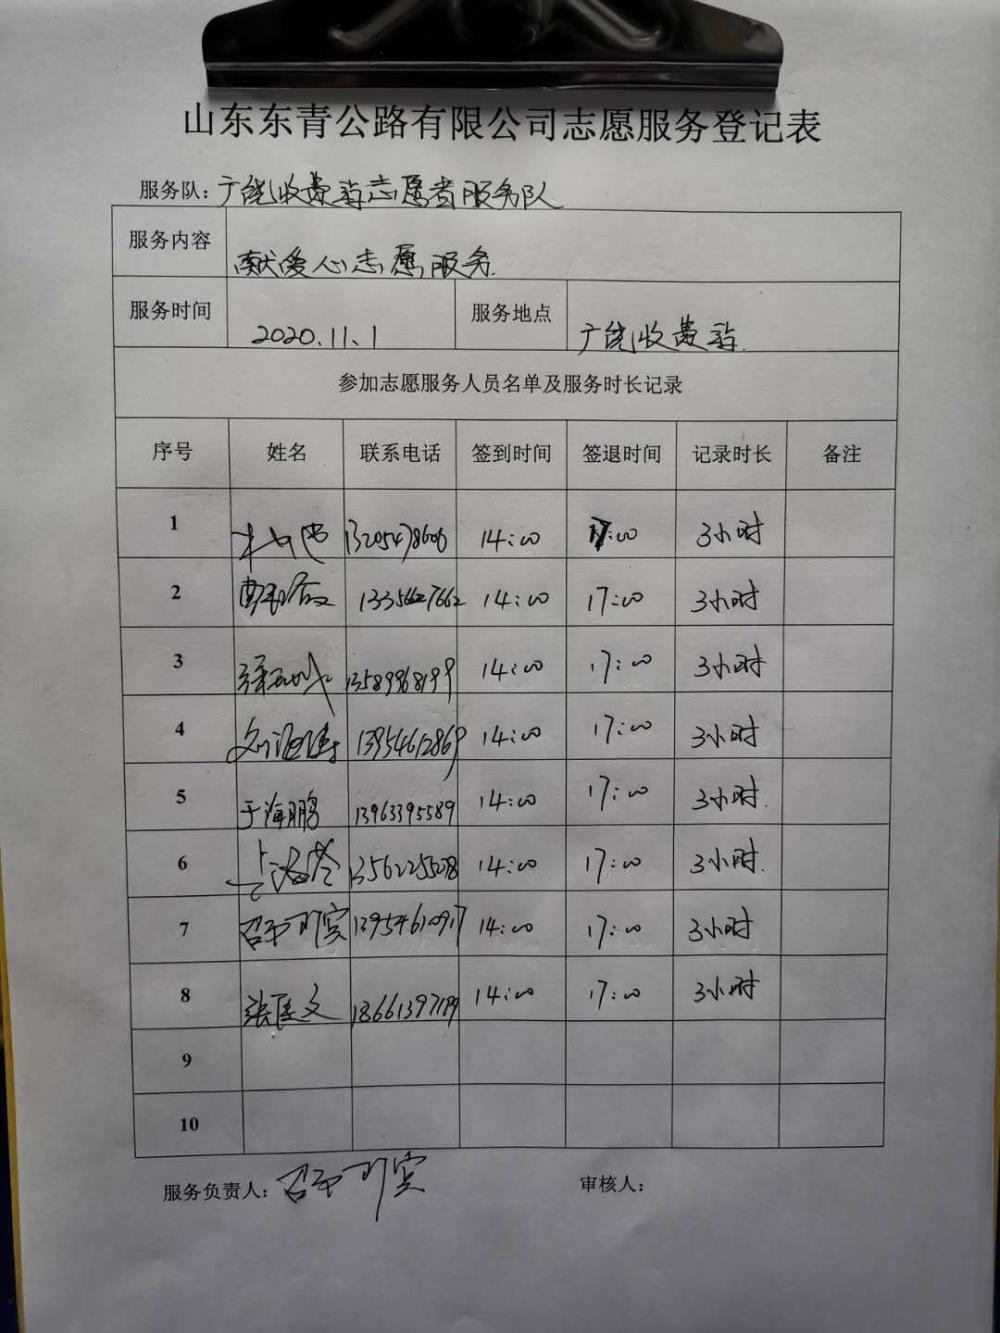 山东东青公路有限公司志愿服务登记表
服务队: 广饶收费站志愿者服务队
服务内容 献爱心志愿服务.
服务时间 2020.11.1 服务地点 广饶收费站.
参加志愿服务人员名单及服务时长记录
序号 姓名 联系电话 签到时间 签退时间 记录时长 备注
1 14:00 17:00 3小时
2 14:00 17:00 3小时
3 13589968199 14:00 17:00 3小时
4 13954612869 14:00 17:00 3小时
5 于海鹏 13963395589 14:00 17:00 3小时.
6 14:00 17:00 3小时.
7 13954610917 14:00 17:00 3小时
8 14:00 17:00 3小时
9
10
服务负责人:
审核人: